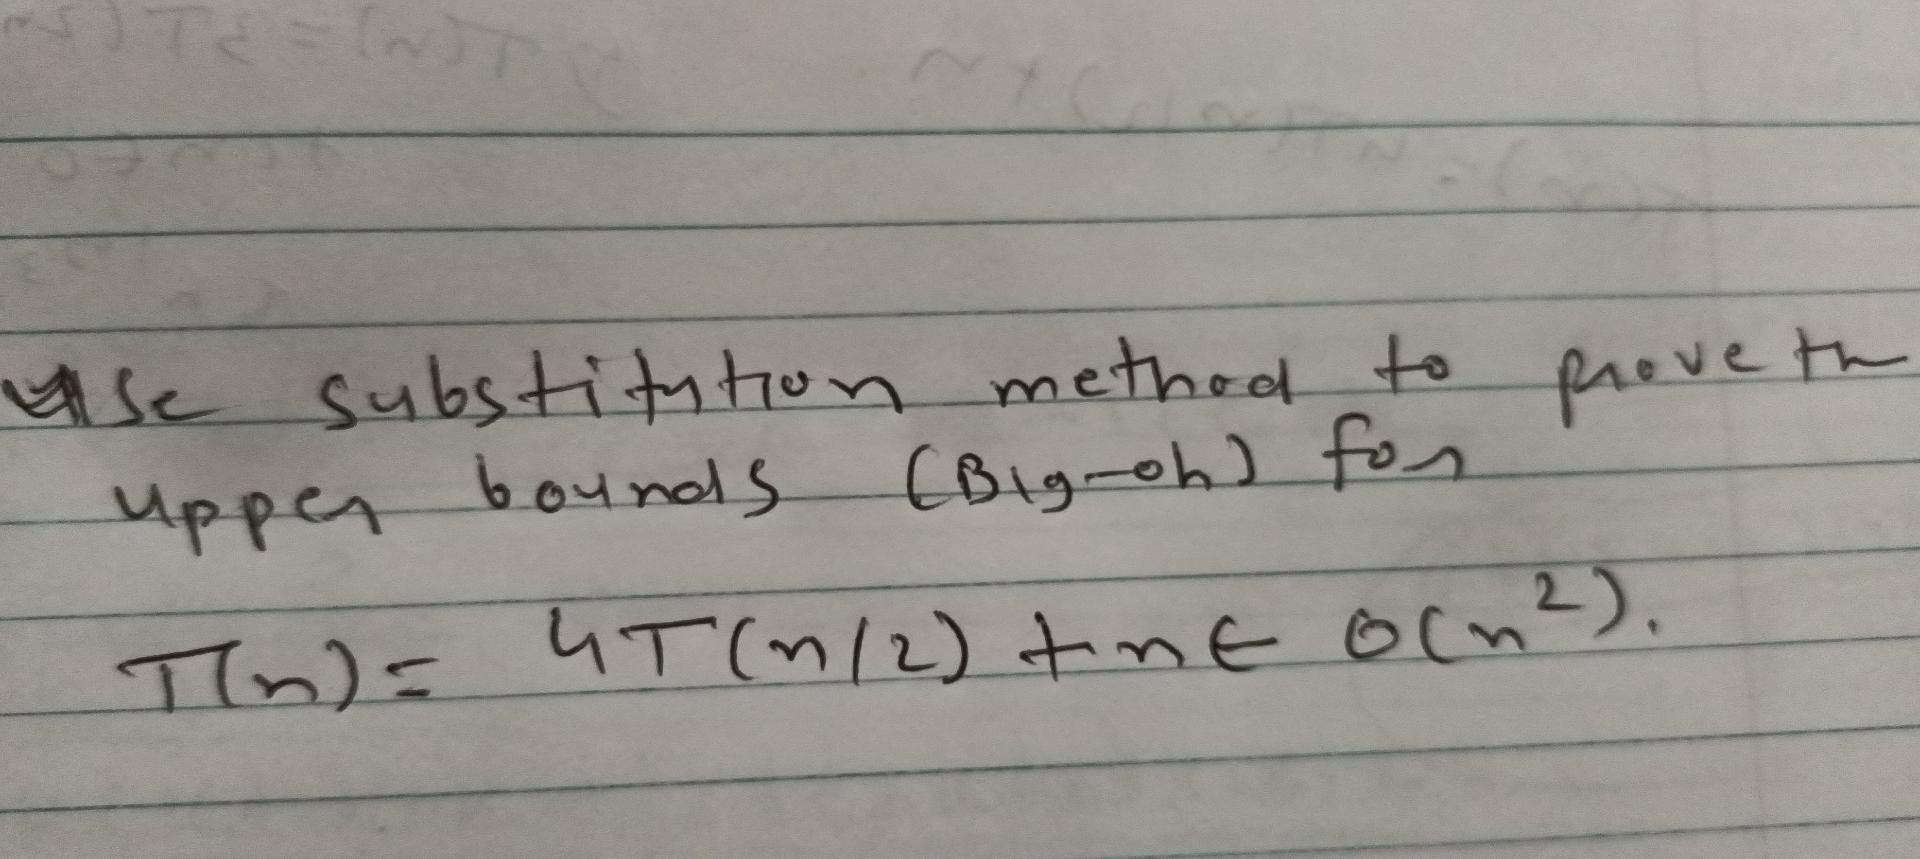 Use substitution method to prove th
upper bounds (Big-oh) for
T(n) = 4T(n/2) + n ∈ O(n²).